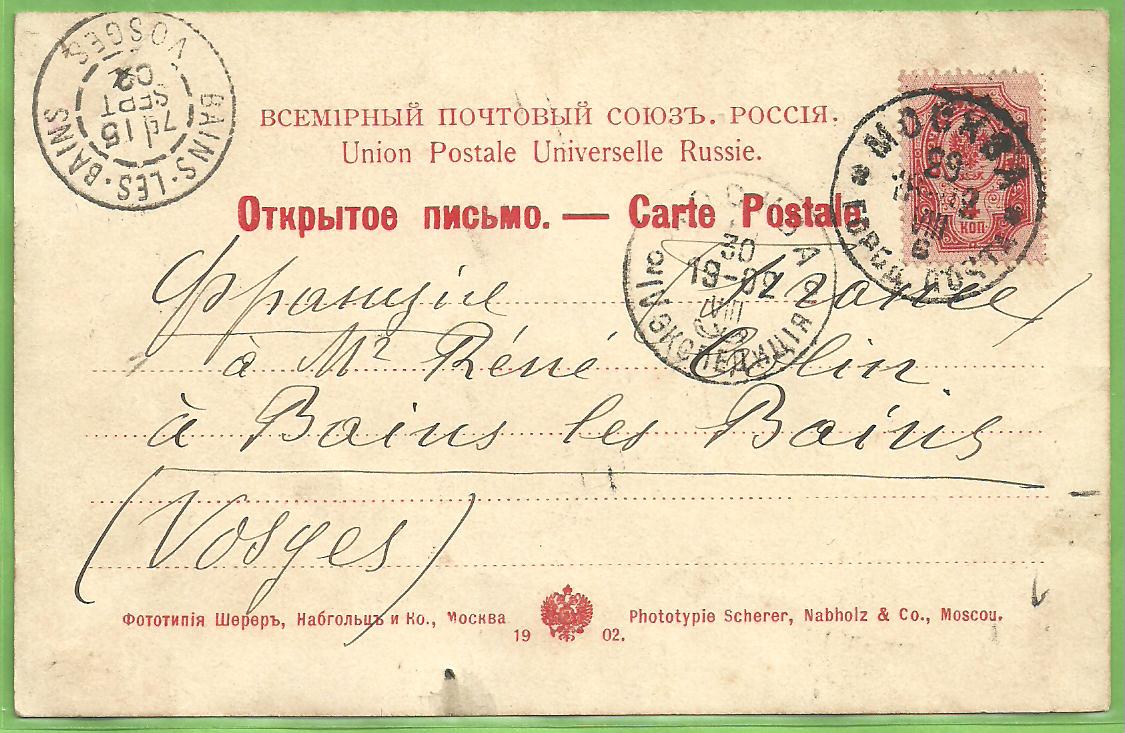 BAINS-LES-BAINS
VOSGES
7E 15
SEPT
02
ВСЕМІРНЫЙ ПОЧТОВЫЙ СОЮЗЪ. РОССІЯ.
Union Postale Universelle Russie.
Открытое письмо. — Carte Postale.
МОСКВА
ГОРОД. ПОЧТА
VIII
КОП.
МОСКВА
30
19-02
VIII
ЭКСПЕДИЦІЯ
Франція France
à Mr Réné Colin
à Bains les Bains
(Vosges)
Фототипія Шереръ, Набгольцъ и Ко., Москва
1902.
Phototypie Scherer, Nabholz & Co., Moscou.